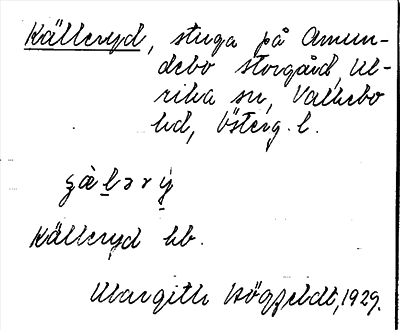 Källeryd, stuga på Amun-
debo storgård, Ul-
rika sn, Valkebo
hd, Österg. l.
Källeryd hb.
Margith Högfeldt, 1929.